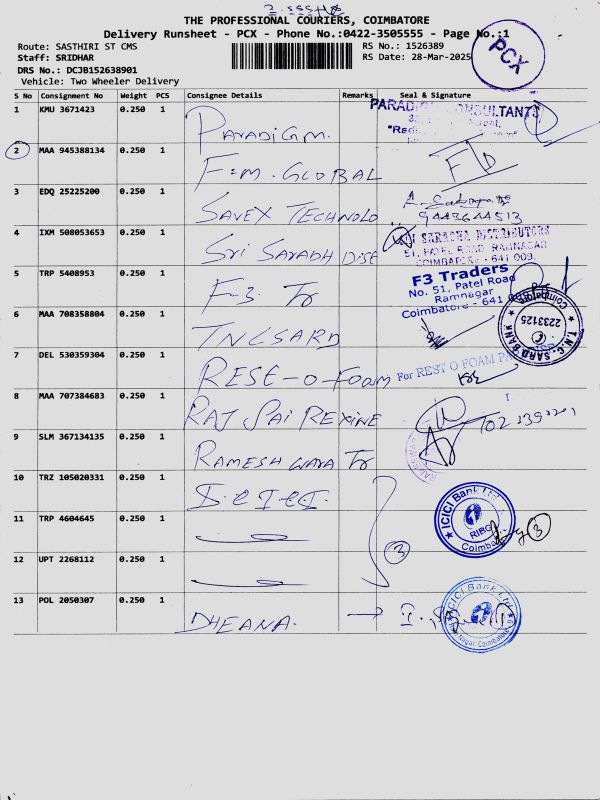 THE PROFESSIONAL COURIERS, COIMBATORE
Delivery Runsheet - PCX - Phone No.:0422-3505555 - Page No.:1
Route: SASTHIRI ST CMS
RS No.: 1526389
Staff: SRIDHAR
RS Date: 28-Mar-2025
DRS No.: DCJB152638901
Vehicle: Two Wheeler Delivery
PCX
S No Consignment No Weight PCS Consignee Details Remarks Seal & Signature
1 KMU 3671423 0.250 1 Paradigm.
2 MAA 945388134 0.250 1 F=M. GLOBAL
3 EDQ 25225200 0.250 1 SAVEX TECHNOLO 9443644513
4 IXM 508053653 0.250 1 Sri Saradh Dise SARADHA DISTRIBUTORS
51, PATEL ROAD RAMNAGAR
COIMBATORE - 641 009.
5 TRP 5408953 0.250 1 F-3 Tr F3 Traders
No. 51, Patel Road
Ramnagar
Coimbatore - 641
6 MAA 708358804 0.250 1 TNCSARD T.N.C. SARD BANK 2233125 Coimbatore
7 DEL 530359304 0.250 1 REST-O-Foam For REST O FOAM
8 MAA 707384683 0.250 1 RAJ SAI REXINE
9 SLM 367134135 0.250 1 RAMESH WARA Tr
10 TRZ 105020331 0.250 1 I.C.I.C.I. ICICI Bank Ltd RIBG Coimbatore
11 TRP 4604645 0.250 1 3 3
12 UPT 2268112 0.250 1
13 POL 2050307 0.250 1 DHEANA. ICICI Bank Ltd Nagar Coimbatore